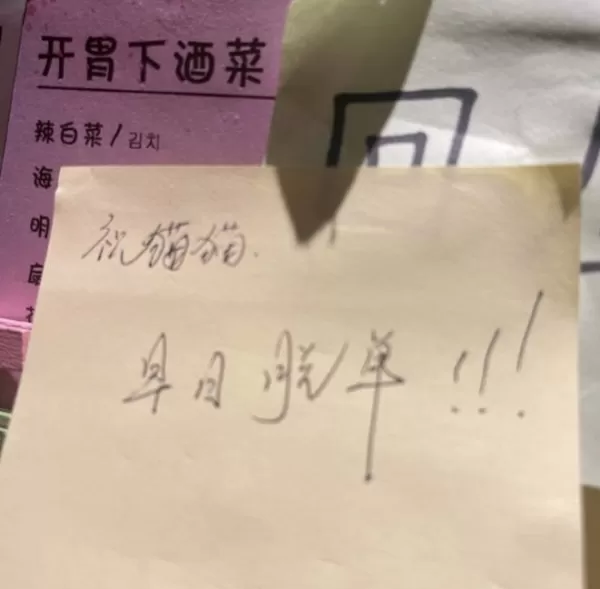 开胃下酒菜
辣白菜/김치
海
明
祝猫猫.
早日脱单!!!